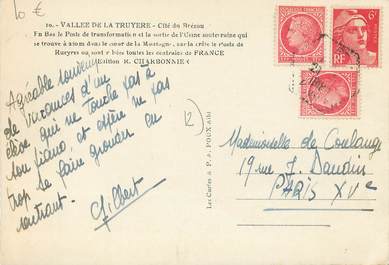 10 €
10. - VALLEE DE LA TRUYERE - Cité du Brézou
En Bas le Poste de transformation et la sortie de l'Usine souterraine qui
se trouve à 250m dans le cœur de la Montagne, sur la crête le Poste de
Rueyres où sont liées toutes les centrales de FRANCE
Edition R. CHARBONNIE
Agréable souvenir
de vacances d'un
élève qui ne touche pas à
son piano, et espère ne pas
trop se faire gronder en
rentrant.
Gilbert
12
Les Cartes A. P. A. POUX Albi
6F
RF
Mademoiselle de Coulange
19 rue J. Daudin
PARIS XVe